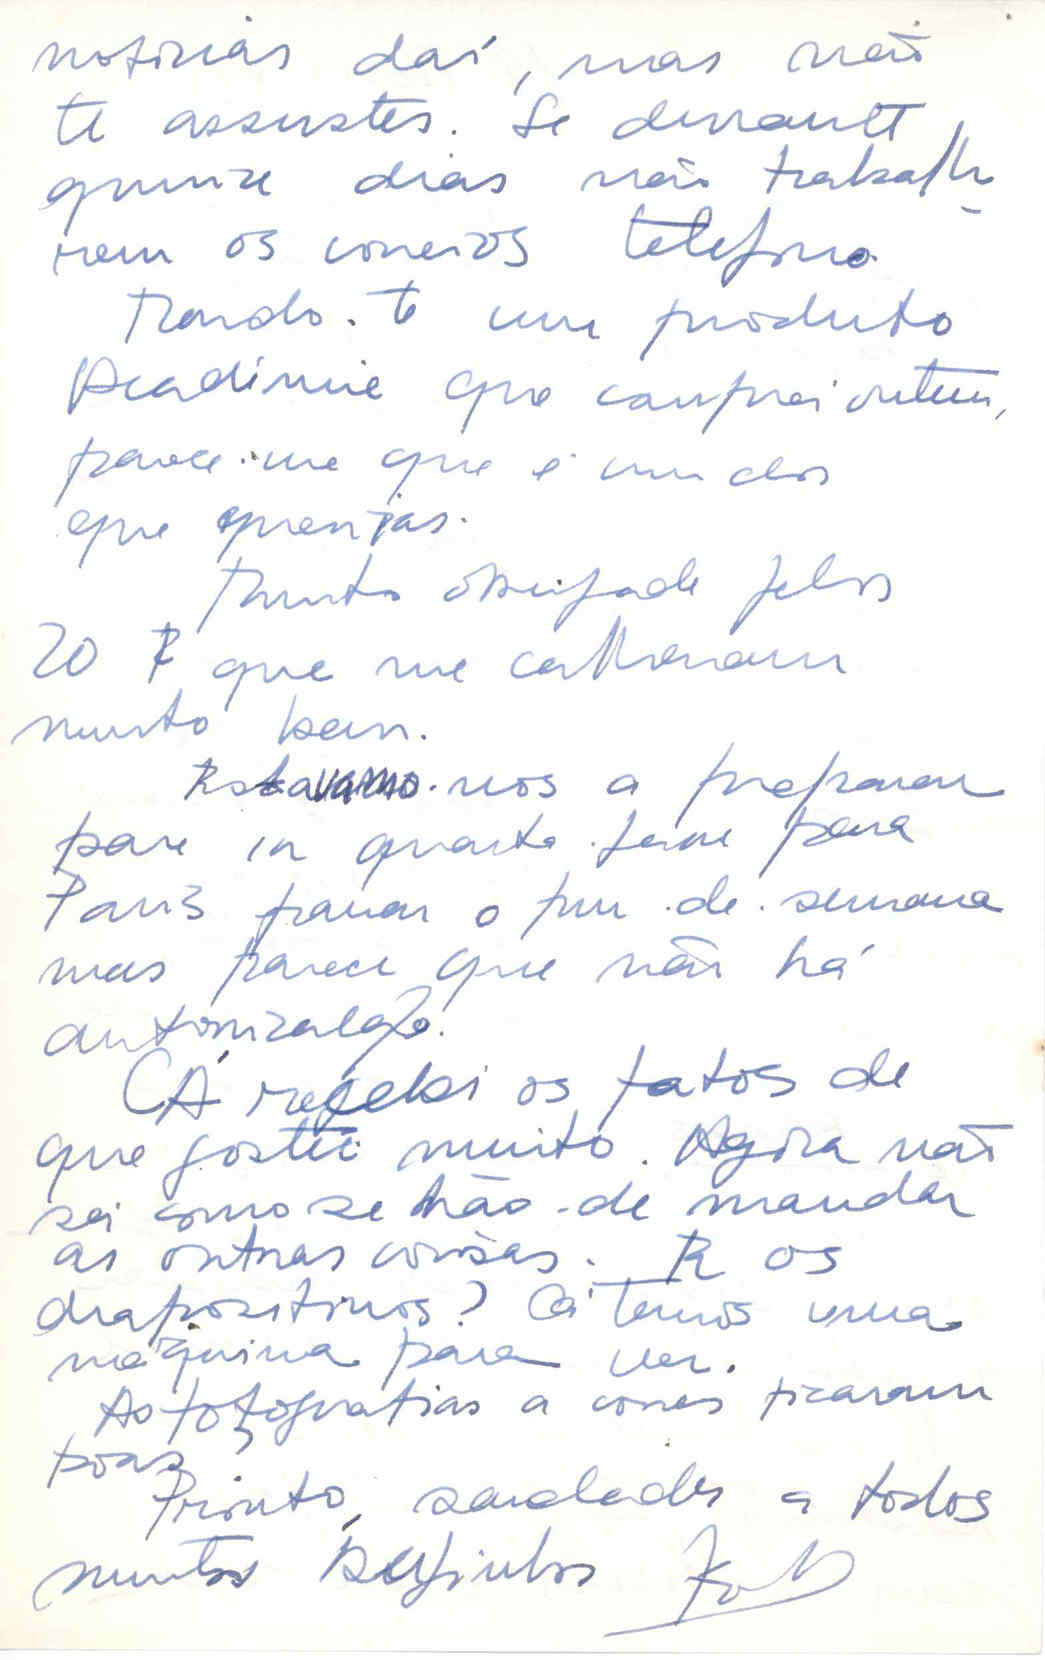 notícias daí, mas não
te assustes. Se durante
quinze dias não trabalha-
rem os correios telefono.
Mando-te um produto
que comprei ontem,
parece-me que é um dos
que querias.
Muito obrigada pelos
20 que me calharam
muito bem.
Estavamo-nos a preparar
para ir quarta-feira para
Paris passar o fim-de-semana
mas parece que não há
autorização.
CÁ recebi os fatos de
que gostei muito. Agora não
sei como se hão-de mandar
as outras coisas. E os
diapositivos? Cá temos uma
máquina para ver.
As fotografias a cores ficaram
boas?
Pronto, saudades a todos
muitos beijinhos